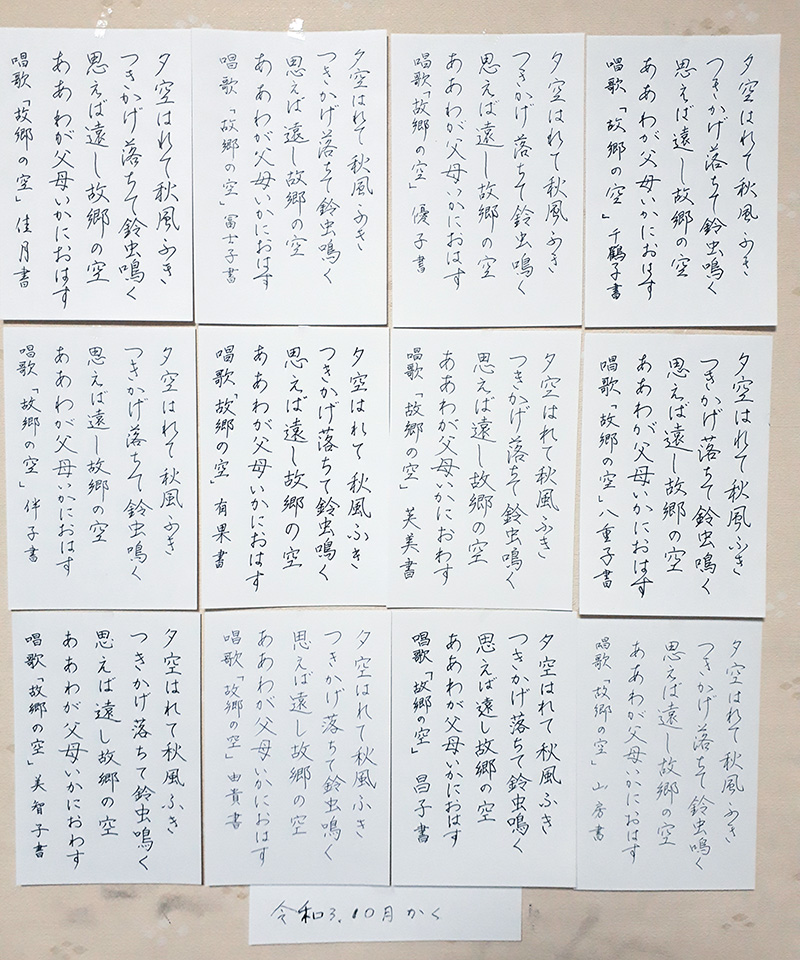 夕空はれて秋風ふき
つきかげ落ちて鈴虫鳴く
思えば遠し故郷の空
ああわが父母いかにおはす
唱歌「故郷の空」千鶴子書
夕空はれて秋風ふき
つきかげ落ちて鈴虫鳴く
思えば遠し故郷の空
ああわが父母いかにおはす
唱歌「故郷の空」優子書
夕空はれて秋風ふき
つきかげ落ちて鈴虫鳴く
思えば遠し故郷の空
ああわが父母いかにおはす
唱歌「故郷の空」冨士子書
夕空はれて秋風ふき
つきかげ落ちて鈴虫鳴く
思えば遠し故郷の空
ああわが父母いかにおはす
唱歌「故郷の空」佳月書
夕空はれて秋風ふき
つきかげ落ちて鈴虫鳴く
思えば遠し故郷の空
ああわが父母いかにおはす
唱歌「故郷の空」八重子書
夕空はれて秋風ふき
つきかげ落ちて鈴虫鳴く
思えば遠し故郷の空
ああわが父母いかにおわす
唱歌「故郷の空」芙美書
夕空はれて秋風ふき
つきかげ落ちて鈴虫鳴く
思えば遠し故郷の空
ああわが父母いかにおはす
唱歌「故郷の空」有果書
夕空はれて秋風ふき
つきかげ落ちて鈴虫鳴く
思えば遠し故郷の空
ああわが父母いかにおはす
唱歌「故郷の空」伴子書
夕空はれて秋風ふき
つきかげ落ちて鈴虫鳴く
思えば遠し故郷の空
ああわが父母いかにおはす
唱歌「故郷の空」山房書
夕空はれて秋風ふき
つきかげ落ちて鈴虫鳴く
思えば遠し故郷の空
ああわが父母いかにおはす
唱歌「故郷の空」昌子書
夕空はれて秋風ふき
つきかげ落ちて鈴虫鳴く
思えば遠し故郷の空
ああわが父母いかにおはす
唱歌「故郷の空」由貴書
夕空はれて秋風ふき
つきかげ落ちて鈴虫鳴く
思えば遠し故郷の空
ああわが父母いかにおわす
唱歌「故郷の空」美智子書
令和3.10月かく